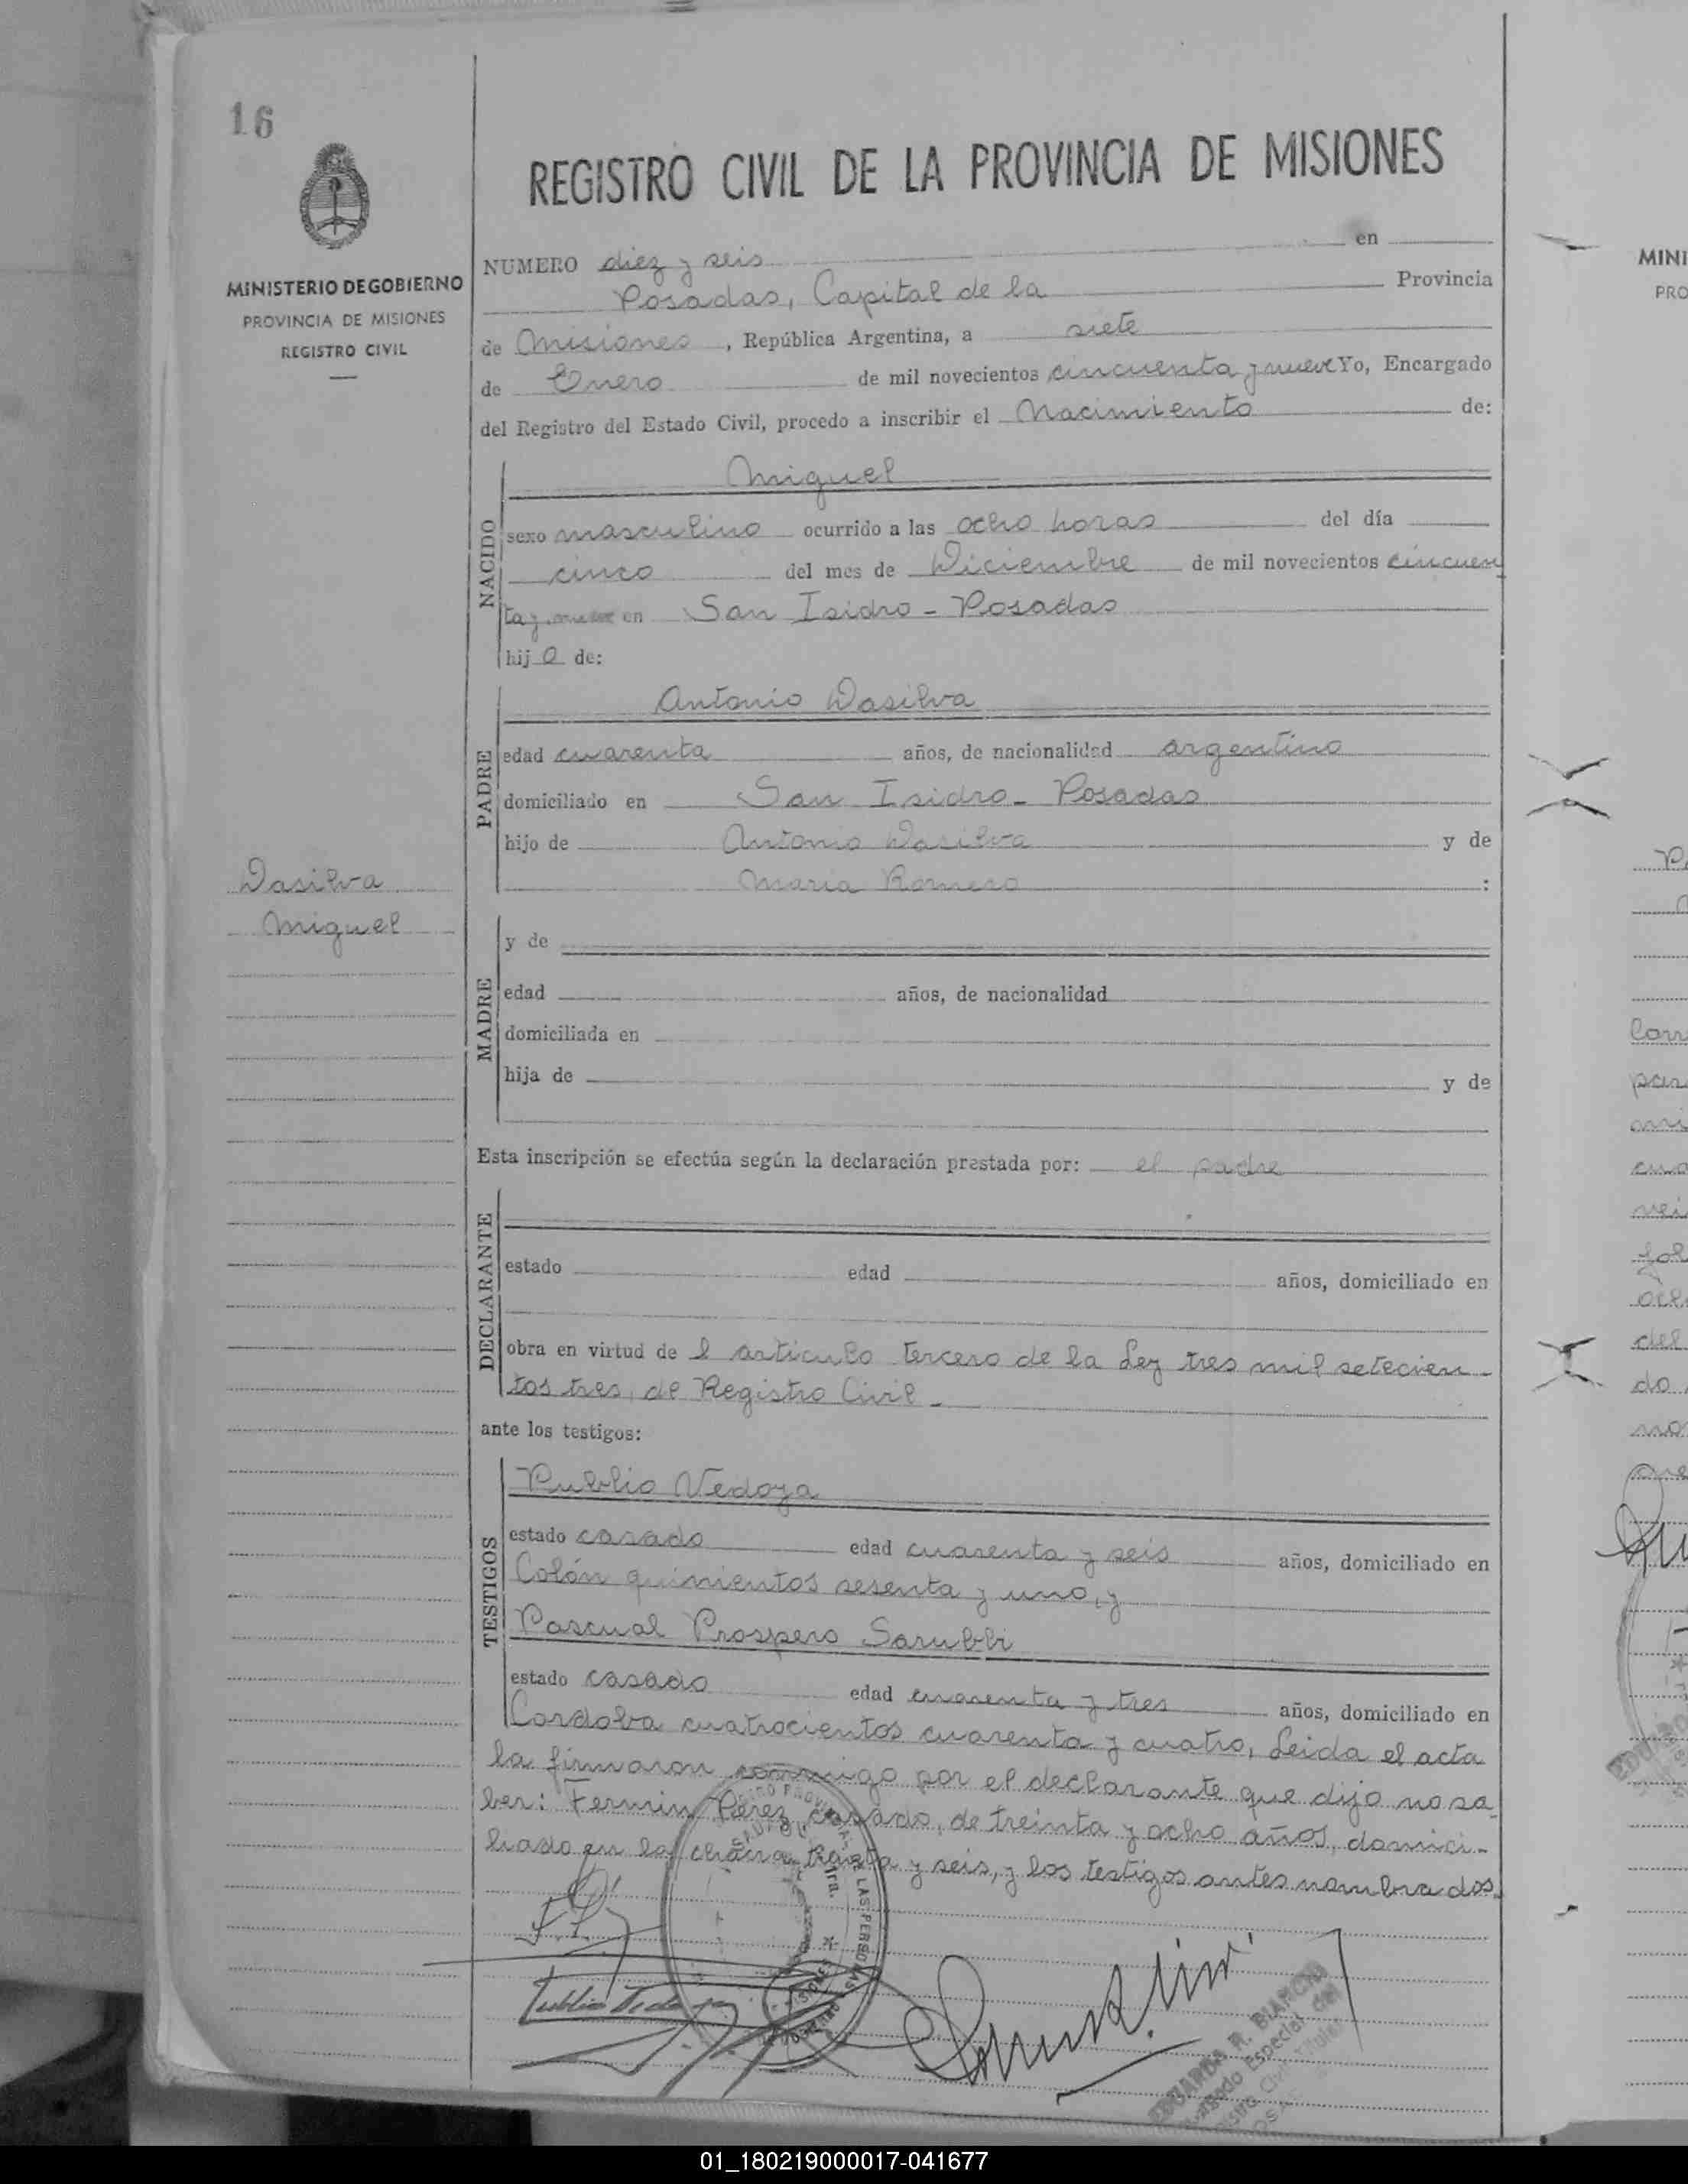 16
REGISTRO CIVIL DE LA PROVINCIA DE MISIONES
MINISTERIO DE GOBIERNO
PROVINCIA DE MISIONES
REGISTRO CIVIL
NUMERO diez y seis en
Posadas, Capital de la Provincia
de Misiones, República Argentina, a siete
de Enero de mil novecientos cincuenta y nueve Yo, Encargado
del Registro del Estado Civil, procedo a inscribir el Nacimiento de:
NACIDO
Miguel
sexo masculino ocurrido a las ocho horas del día
cinco del mes de Diciembre de mil novecientos cincuen
ta y en San Isidro - Posadas
hijo de:
PADRE
Antonio Dasilva
edad cuarenta años, de nacionalidad argentino
domiciliado en San Isidro - Posadas
hijo de Antonio Dasilva y de
Maria Romero :
Dasilva
Miguel
MADRE
y de
edad años, de nacionalidad
domiciliada en
hija de y de
Esta inscripción se efectúa según la declaración prestada por: el padre
DECLARANTE
estado edad años, domiciliado en
obra en virtud de l articulo tercero de la Ley tres mil setecien-
tos tres, de Registro Civil -
ante los testigos:
TESTIGOS
Publio Vedoya
estado casado edad cuarenta y seis años, domiciliado en
Colón quinientos sesenta y uno, y
Pascual Prospero Sarubbi
estado casado edad cuarenta y tres años, domiciliado en
Cordoba cuatrocientos cuarenta y cuatro, Leida el acta
la firmaron conmigo por el declarante que dijo no sa-
ber: Fermin Perez casado, de treinta y ocho años, domici-
liado en la chacra treinta y seis, y los testigos antes nombrados.
Publio Vedoya
LAS PERSONAS
EDUARDA R. BIANCHI
Especial del
01_180219000017-041677